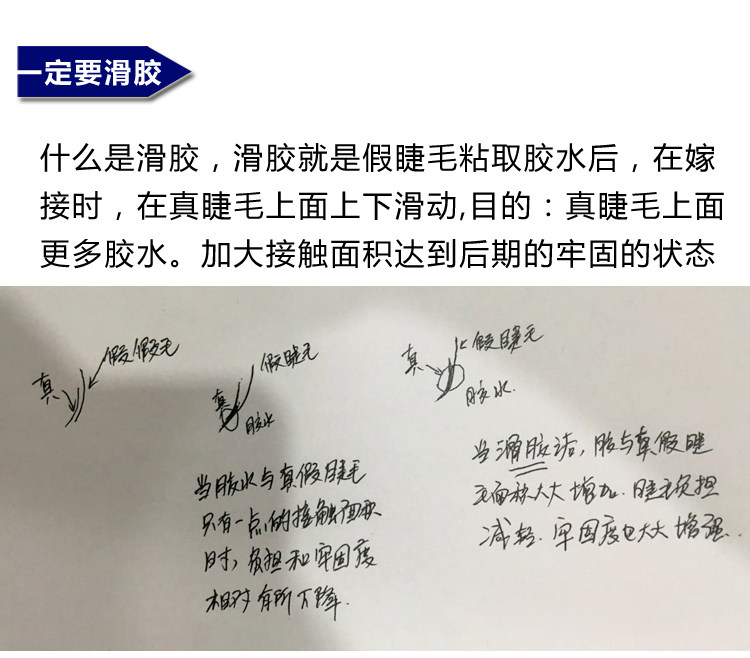 一定要滑胶
什么是滑胶，滑胶就是假睫毛粘取胶水后，在嫁
接时，在真睫毛上面上下滑动,目的：真睫毛上面
更多胶水。加大接触面积达到后期的牢固的状态
真
假假毛
假睫毛
真
胶水
真
假睫毛
胶水.
当胶水与真假睫毛
只有一点的接触面积
时，负担和牢固度
相对有所下降.
当滑胶话，胶与真假睫
毛面积大大增加.睫毛负担
减轻.牢固度也大大增强.